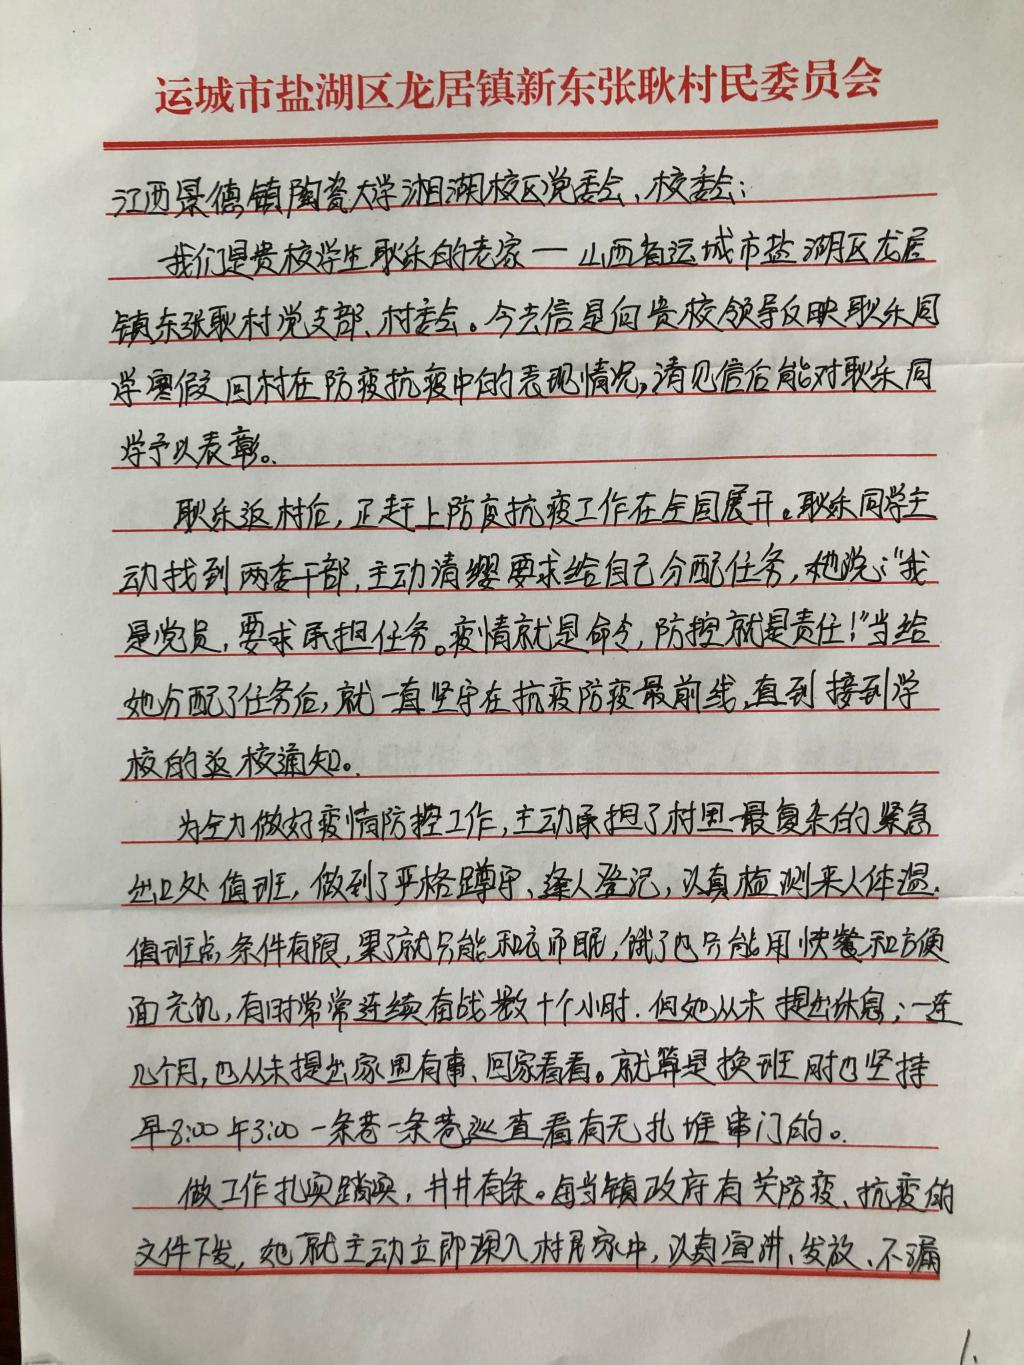 运城市盐湖区龙居镇新东张耿村民委员会
江西景德镇陶瓷大学湘湖校区党委会、校委会：
我们是贵校学生耿乐的老家—山西省运城市盐湖区龙居
镇东张耿村党支部、村委会。今去信是向贵校领导反映耿乐同
学寒假回村在防疫抗疫中的表现情况，请见信后能对耿乐同
学予以表彰。
耿乐返村后，正赶上防疫抗疫工作在全国展开。耿乐同学主
动找到两委干部，主动请缨要求给自己分配任务，她说："我
是党员，要求承担任务。疫情就是命令，防控就是责任！"当给
她分配了任务后，就一直坚守在抗疫防疫最前线，直到接到学
校的返校通知。
为全力做好疫情防控工作，主动承担了村里最复杂的紧急
出口处值班，做到了严格蹲守、逢人登记，认真检测来人体温.
值班点条件有限，累了就只能和衣而眠，饿了也只能用快餐和方便
面充饥，有时常常连续奋战数十个小时.但她从未提出休息；一连
几个月，也从未提出家里有事、回家看看。就算是换班时也坚持
早8:00午3:00一条巷一条巷巡查看有无扎堆串门的。
做工作扎实踏实，井井有条。每当镇政府有关防疫、抗疫的
文件下发，她就主动立即深入村居家中，认真宣讲、发放、不漏
1.